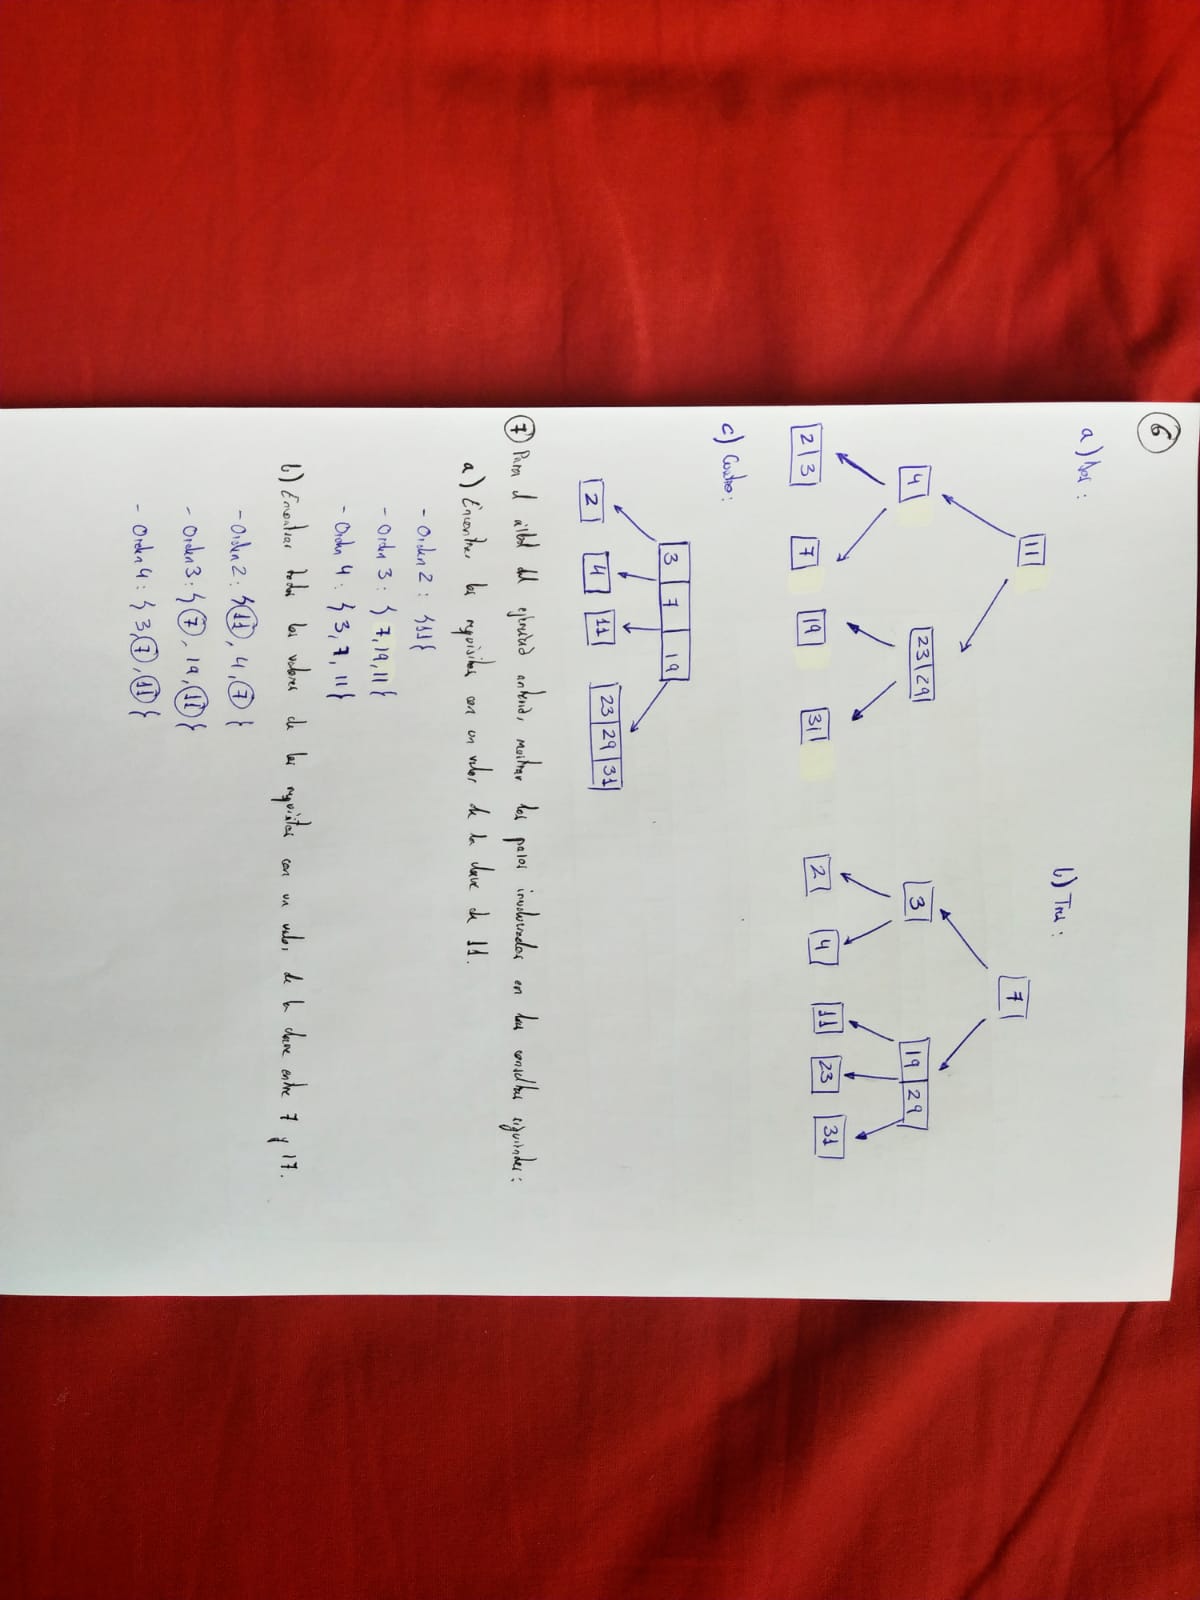 6
a) Dos:
b) Tres:
11
7
4
23 | 29
3
19 | 29
2 | 3
7
19
31
2
4
11
23
31
c) Cuatro:
3 | 7 | 19
2
4
11
23 | 29 | 31
7 Para el árbol del ejercicio anterior, mostrar los pasos involucrados en las consultas siguientes:
a) Encontrar los registros con un valor de la clave de 11.
- Orden 2: {11{
- Orden 3: { 7, 19, 11 {
- Orden 4: { 3, 7, 11 {
b) Encontrar todos los valores de los registros con un valor de la clave entre 7 y 17.
- Orden 2: {11, 4, 7 {
- Orden 3: { 7, 19, 11 {
- Orden 4: { 3, 7, 11 {